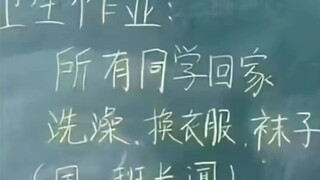 卫生作业:
所有同学回家
洗澡、换衣服、袜子
(周一班长闻)